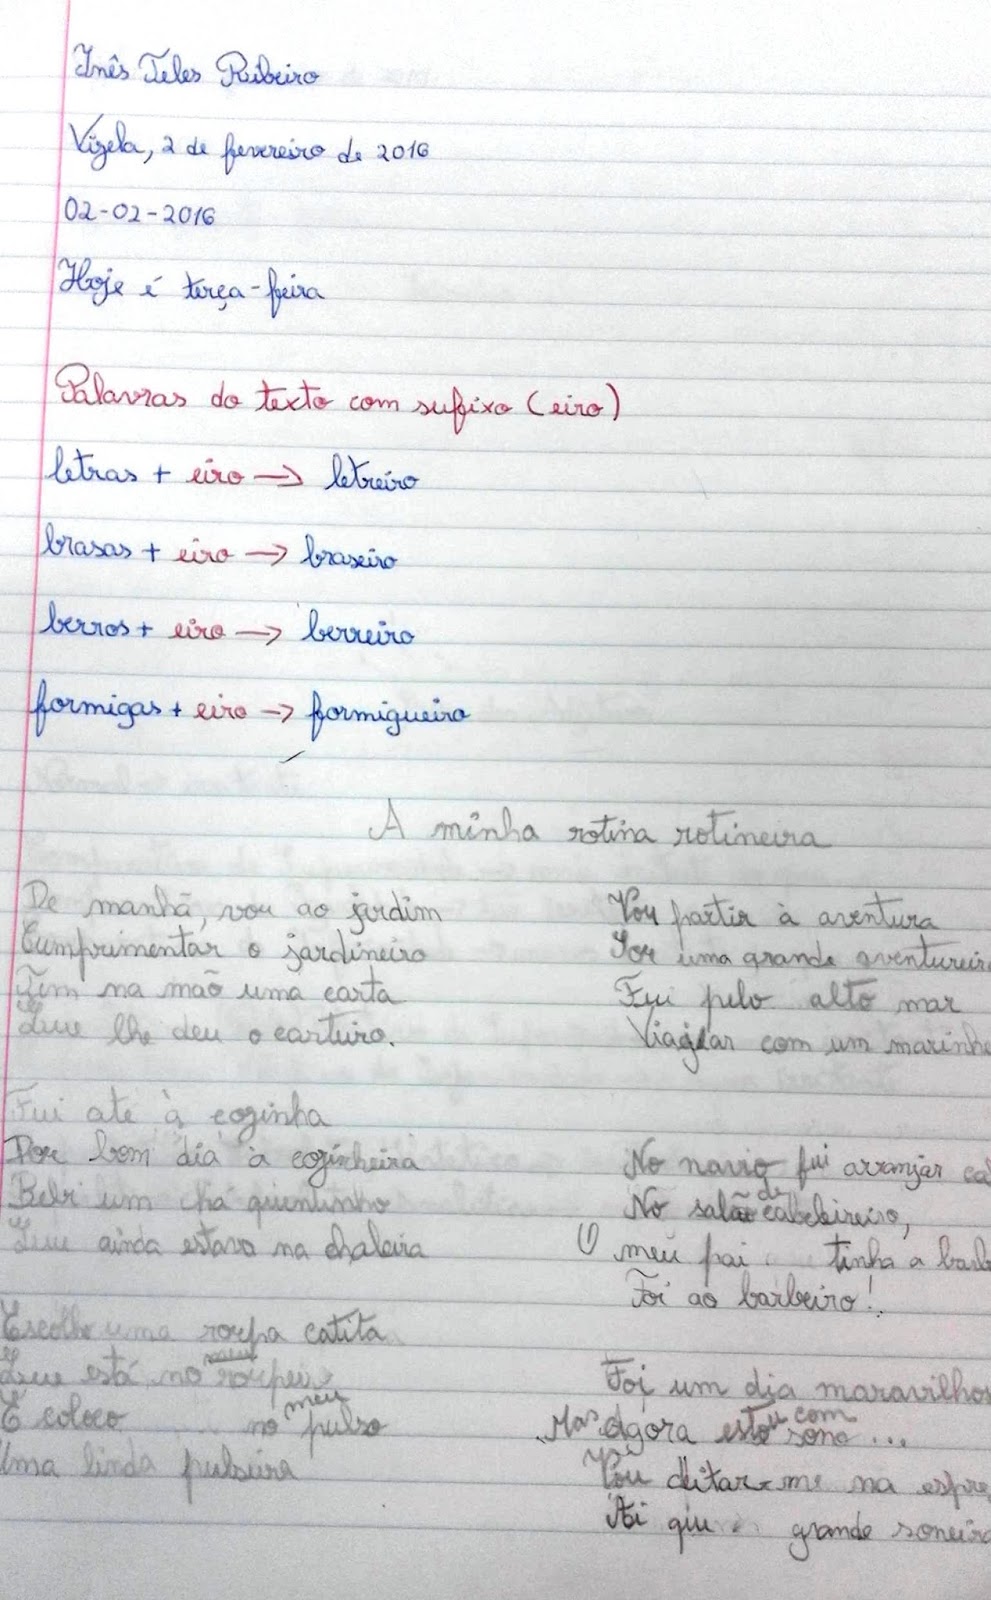 Inês Teles Ribeiro
Vizela, 2 de fevereiro de 2016
02-02-2016
Hoje é terça-feira
Palavras do texto com sufixo (eiro)
letras + eiro → letreiro
brasas + eiro → braseiro
berros + eiro → berreiro
formigas + eiro → formigueiro
A minha rotina rotineira
De manhã, vou ao jardim
Cumprimentar o jardineiro
Tem na mão uma carta
Que lhe deu o carteiro.
Fui ate à cozinha
Dou bom dia à cozinheira
Bebi um chá quentinho
Que ainda estava na chaleira
Escolho uma roupa catita
Que está no meu roupeiro
E coloco no meu pulso
Uma linda pulseira
Vou partir à aventura
Sou uma grande aventureir
Fui pelo alto mar
Viajar com um marinhe
No navio fui arranjar ca
No salão de cabeleireiro,
O meu pai tinha a barb
Foi ao barbeiro!
Foi um dia maravilhos
Mas agora estou com sono...
Vou deitar-me na espre
Ai que grande soneira